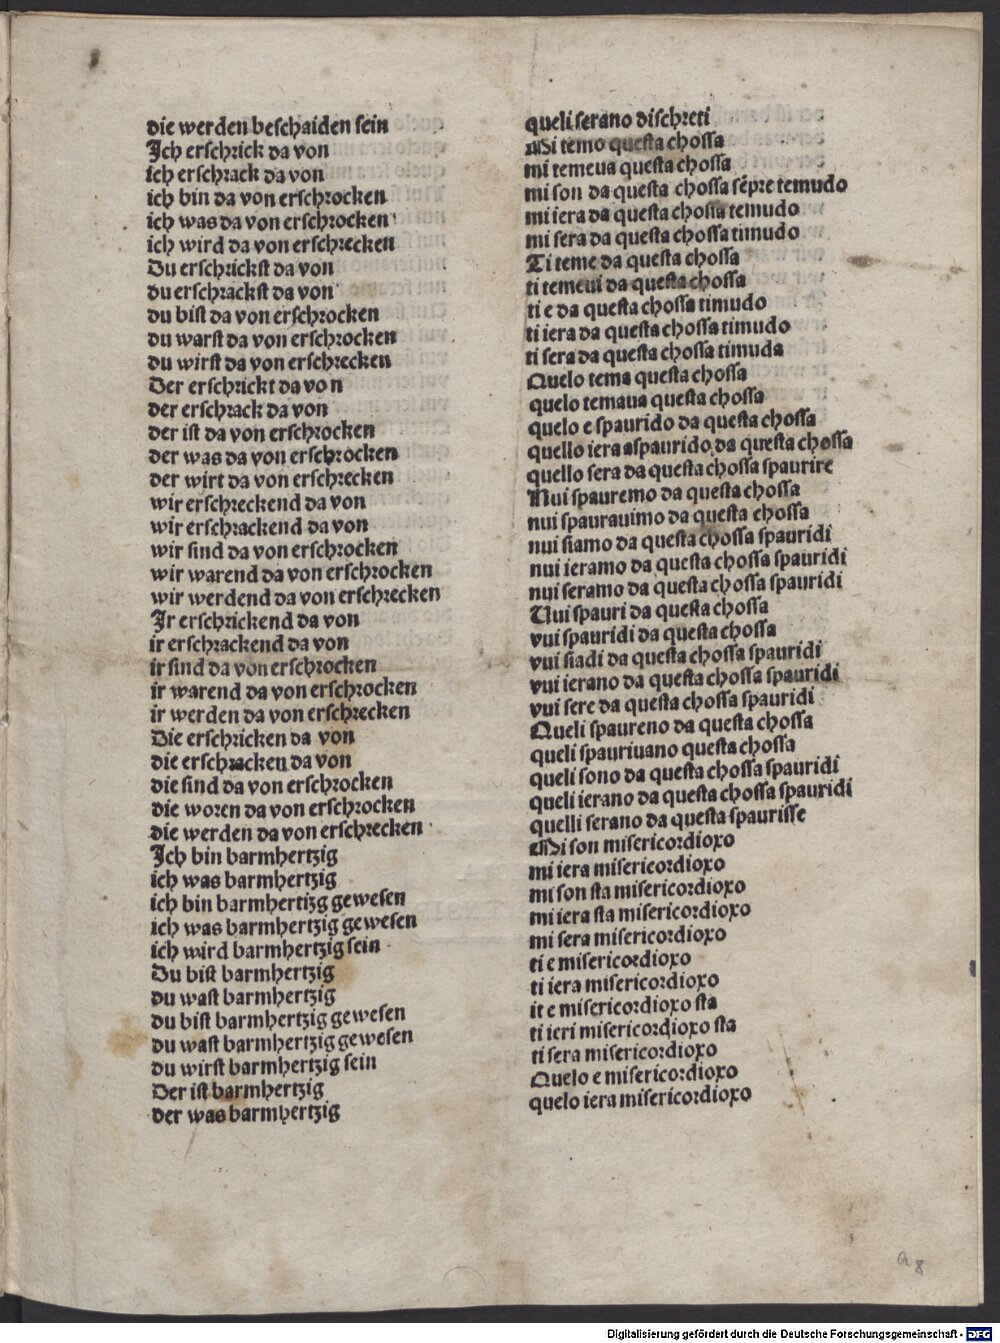 die werden beschaiden sein
Ich erschrick da von
ich erschrack da von
ich bin da von erschrocken
ich was da von erschrocken
ich wird da von erschrecken
Du erschrickst da von
du erschrackst da von
du bist da von erschrocken
du warst da von erschrocken
du wirst da von erschrecken
Der erschrickt da von
der erschrack da von
der ist da von erschrocken
der was da von erschrocken
der wirt da von erschrecken
wir erschreckend da von
wir erschrackend da von
wir sind da von erschrocken
wir warend da von erschrocken
wir werdend da von erschrecken
Ir erschrickend da von
ir erschrackend da von
ir sind da von erschrocken
ir warend da von erschrocken
ir werden da von erschrecken
Die erschricken da von
die erschracken da von
die sind da von erschrocken
die woren da von erschrocken
die werden da von erschrecken
Ich bin barmhertzig
ich was barmhertzig
ich bin barmhertizg gewesen
ich was barmhertzig gewesen
ich wird barmhertzig sein
Du bist barmhertzig
du wast barmhertzig
du bist barmhertzig gewesen
du wast barmhertzig gewesen
du wirst barmhertzig sein
Der ist barmhertzig
der was barmhertzig
queli serano dischreti
Mi temo questa chossa
mi temeva questa chossa
mi son da questa chossa sēpre temudo
mi iera da questa chossa temudo
mi sera da questa chossa timudo
Ti teme da questa chossa
ti temeui da questa chossa
ti e da questa chossa timudo
ti iera da questa chossa timudo
ti sera da questa chossa timuda
Quelo tema questa chossa
quelo temaua questa chossa
quelo e spaurido da questa chossa
quello iera aspaurido da questa chossa
quello sera da questa chossa spaurire
Nui spauremo da questa chossa
nui spaurauimo da questa chossa
nui siamo da questa chossa spauridi
nui ieramo da questa chossa spauridi
nui seramo da questa chossa spauridi
Vui spauri da questa chossa
vui spauridi da questa chossa
vui siadi da questa chossa spauridi
vui ierano da questa chossa spauridi
vui sere da questa chossa spauridi
Queli spaureno da questa chossa
queli spauriuano questa chossa
queli sono da questa chossa spauridi
queli ierano da questa chossa spauridi
quelli serano da questa spaurisse
Mi son misericordioxo
mi iera misericordioxo
mi son sta misericordioxo
mi iera sta misericordioxo
mi sera misericordioxo
ti e misericordioxo
ti iera misericordioxo
it e misericordioxo sta
ti ieri misericordioxo sta
ti sera misericordioxo
Quelo e misericordioxo
quelo iera misericordioxo
8
Digitalisierung gefördert durch die Deutsche Forschungsgemeinschaft - DFG